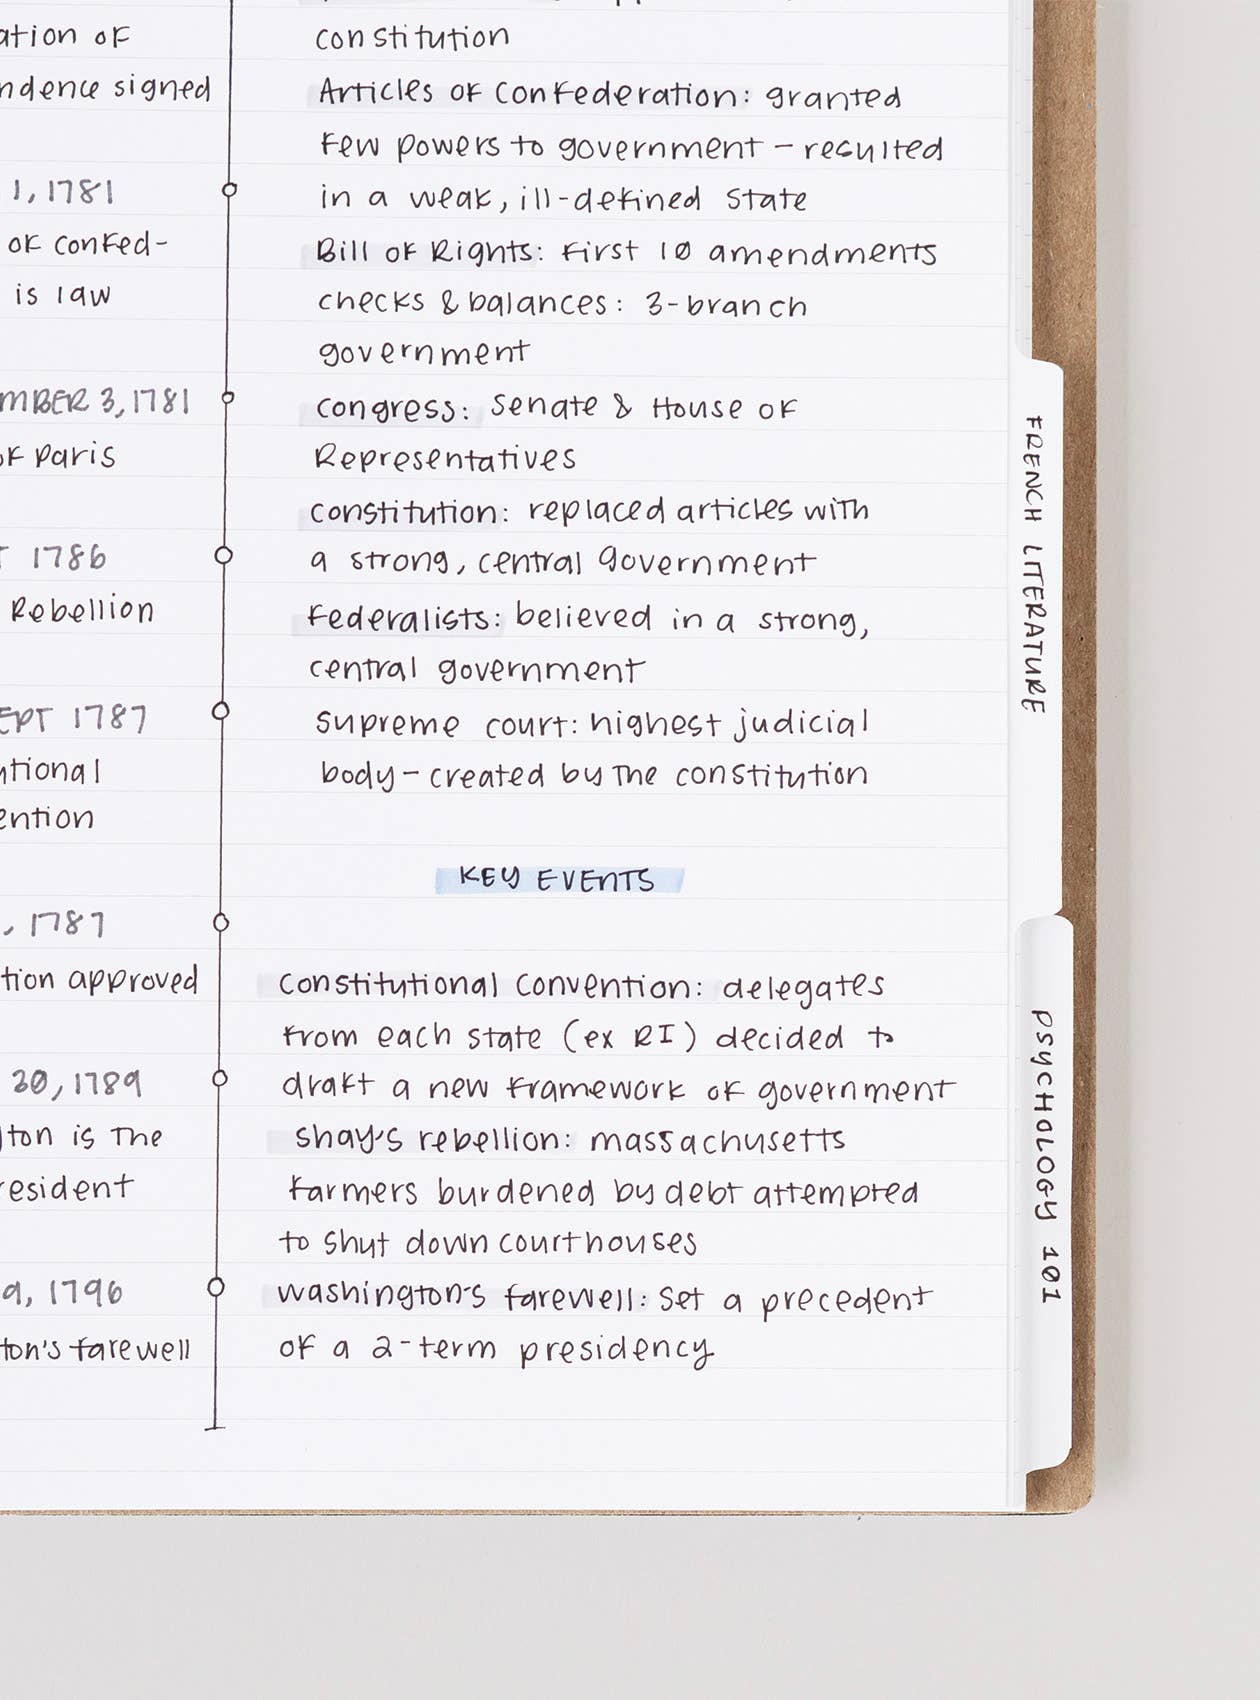 ation of
ndence signed
1, 1781
of confed-
is law
MBER 3, 1781
of Paris
1786
Rebellion
EPT 1787
utional
ention
, 1787
tion approved
30, 1789
ton is the
resident
9, 1796
ton's farewell
constitution
Articles of Confederation: granted
few powers to government - resulted
in a weak, ill-defined state
Bill of Rights: first 10 amendments
checks & balances: 3-branch
government
congress: Senate & House of
Representatives
constitution: replaced articles with
a strong, central government
federalists: believed in a strong,
central government
supreme court: highest judicial
body - created by the constitution
KEY EVENTS
constitutional convention: delegates
from each state (ex RI) decided to
draft a new framework of government
shay's rebellion: massachusetts
farmers burdened by debt attempted
to shut down courthouses
washington's farewell: set a precedent
of a 2-term presidency
FRENCH LITERATURE
PSYCHOLOGY 101